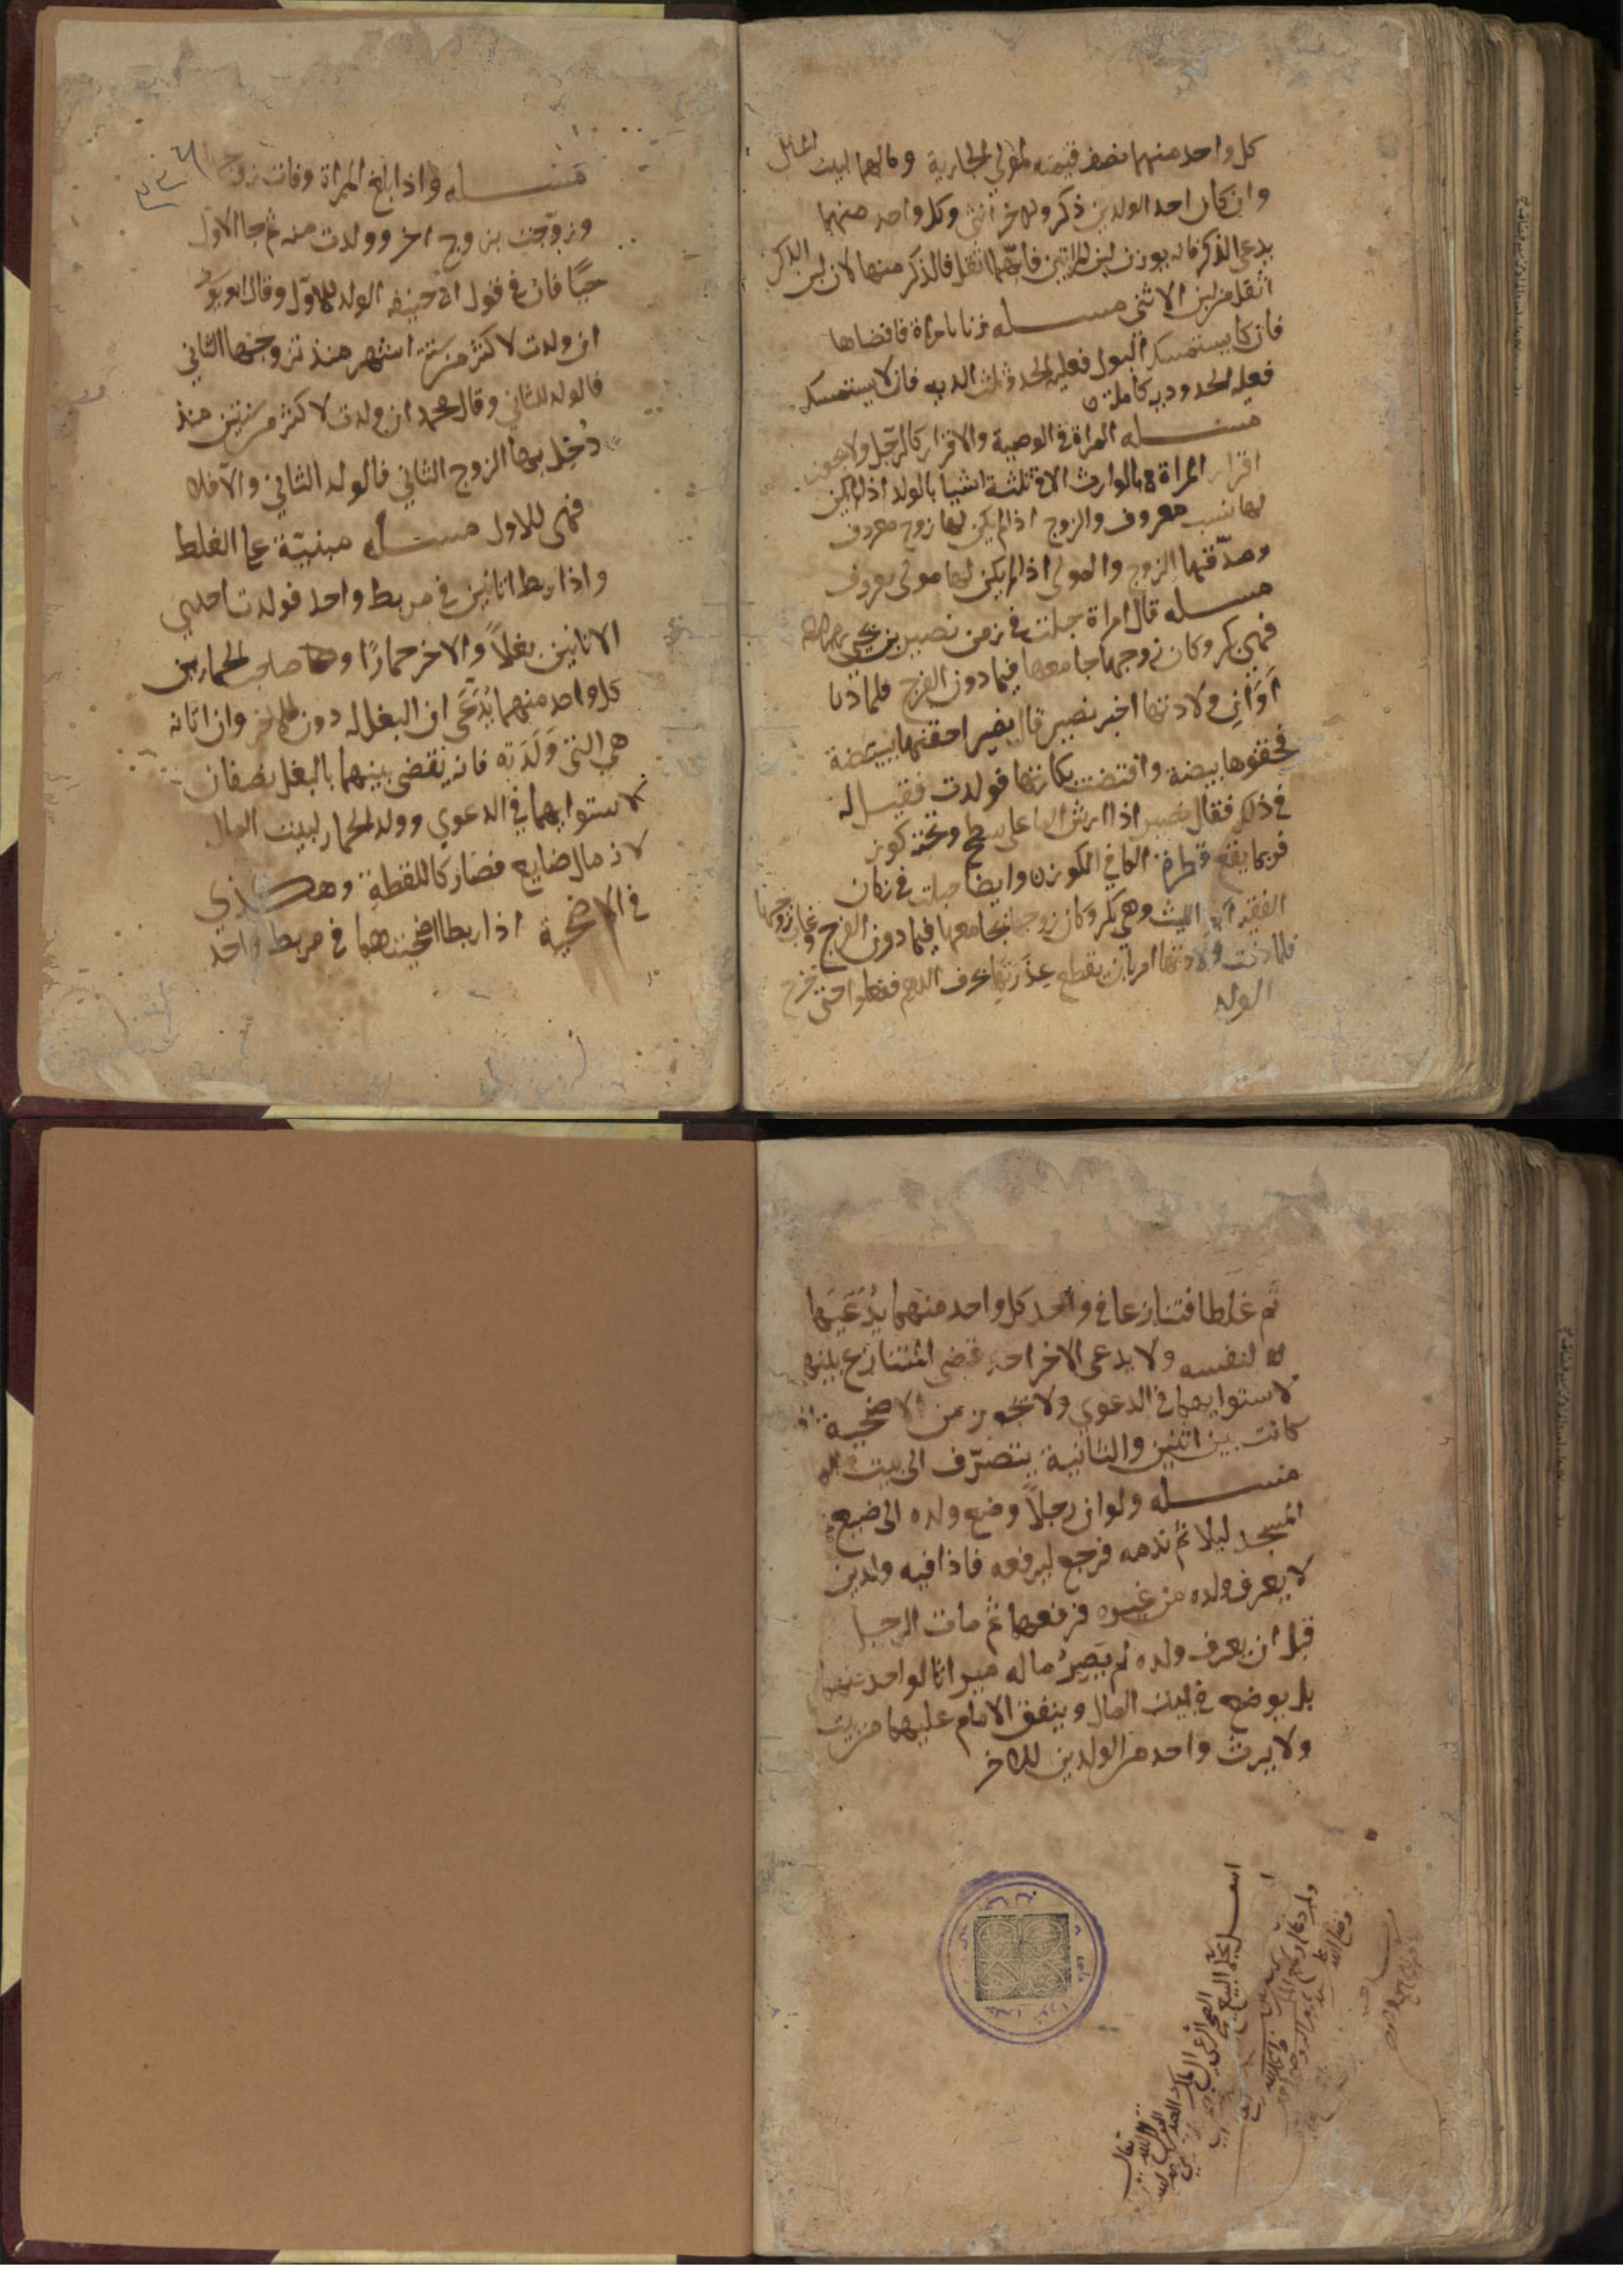 كل واحد منهما نصف قيمته لمولي الجارية ومالهما لبيت المال
وان كان احد الولدين ذكر والاخر أنثى وكل واحد منهما
يدعى الذكر فانه يوزن لبن المراتين فايّهما اثقل فالذكر منها لان لبن الذكر
اثقل من لبن الانثى مسله زنا بامراة فافضاها
فان كا يستمسك البول فعليه الحد وثلث الديه فان لا يستمسك
فعليه الحد وديه كاملة
مسله المراة في الوصية والاقرار كالرّجل ولا يجوز
اقرار المراة بالوارث الا في ثلثة اشيا بالولد اذا لم يكن
لها نسب معروف والزوج اذا لم يكن لها زوج معروف
وصدّقها الزوج والمولى اذا لم يكن لها مولى معروف
مسله قال امراة حبلت في زمن نصير بن يحيى
فهي بكر وكان زوجها جامعها فيما دون الفرج فلما دنا
أوَانِ ولادتها اخبر نصير قال نصير احقنها ببيضة
فحقنوها ببيضة وافتضت بكارتها فولدت فقيل له
في ذلك فقال نصير اذا رش الما على سطح وتحته كوز
فربما يقع قطرة الما في الكوز وايضا حبلت في زمان
الفقيه ابي الليث وهي بكر وكان زوجها يجامعها فيما دون الفرج وغاب زوجها
فلما دنت ولادتها امر بان يقطع عذرتها بحرف الدرهم ففعلوا حتى خرج
الولد
مسله واذا بلغ المراة وفات زوجها
وتزوّجت بزوج اخر وولدت منه ثم جا الاول
حيًا فان في قول ابي حنيفه الولد للاوّل وقال ابو يوسف
ان ولدت لاكثر من ستة اشهر منذ تزوجها الثاني
فالولد للثاني وقال محمد ان ولدت لاكثر من سنتين منذ
دُخِل بها الزوج الثاني فالولد الثاني والّا فلا
فهي للاول مسله مبنيّة على الغلط
واذا ربط اتانين في مربط واحد فولدت احدى
الاتانين بغلاً والاخر حمارًا وهما صاحب الحمارين
كل واحد منهما يُدّعَى ان البغل له دون الاخر وان اتانه
هي التي وَلَدَته فانه يقضى بينهما بالبغل نصفان
لاستوايهما في الدعوي وولد الحمار لبيت المال
لانه مال ضايع فصار كاللقطة وهكذي
في الاضحية اذا ربطا اضحيتهما في مربط واحد
ثم غلطا فتنازعا في واحد كل واحد منهما يدّعيها
لنفسه ولا يدعى الاخر احد قضى المتنازع بينهما
لاستوايهما في الدعوي ولا تجوز عن الاضحية
كانت بين اثنين والثانية يتصرّف الى بيت
مسله ولو ان رجلاً وضع ولده الى
المسجد ليلا ثم ندمه فرجع ليرفعه فاذا فيه ولدين
لا يعرف ولده من غيره فرفعهما ثم مات الرجل
قبل ان يعرف ولده لم يَصِيرُ ماله ميراثا لواحد منهما
بل يوضع في بيت المال وينفق الامام عليهما من بيت
ولا يرث واحد من الولدين للاخر